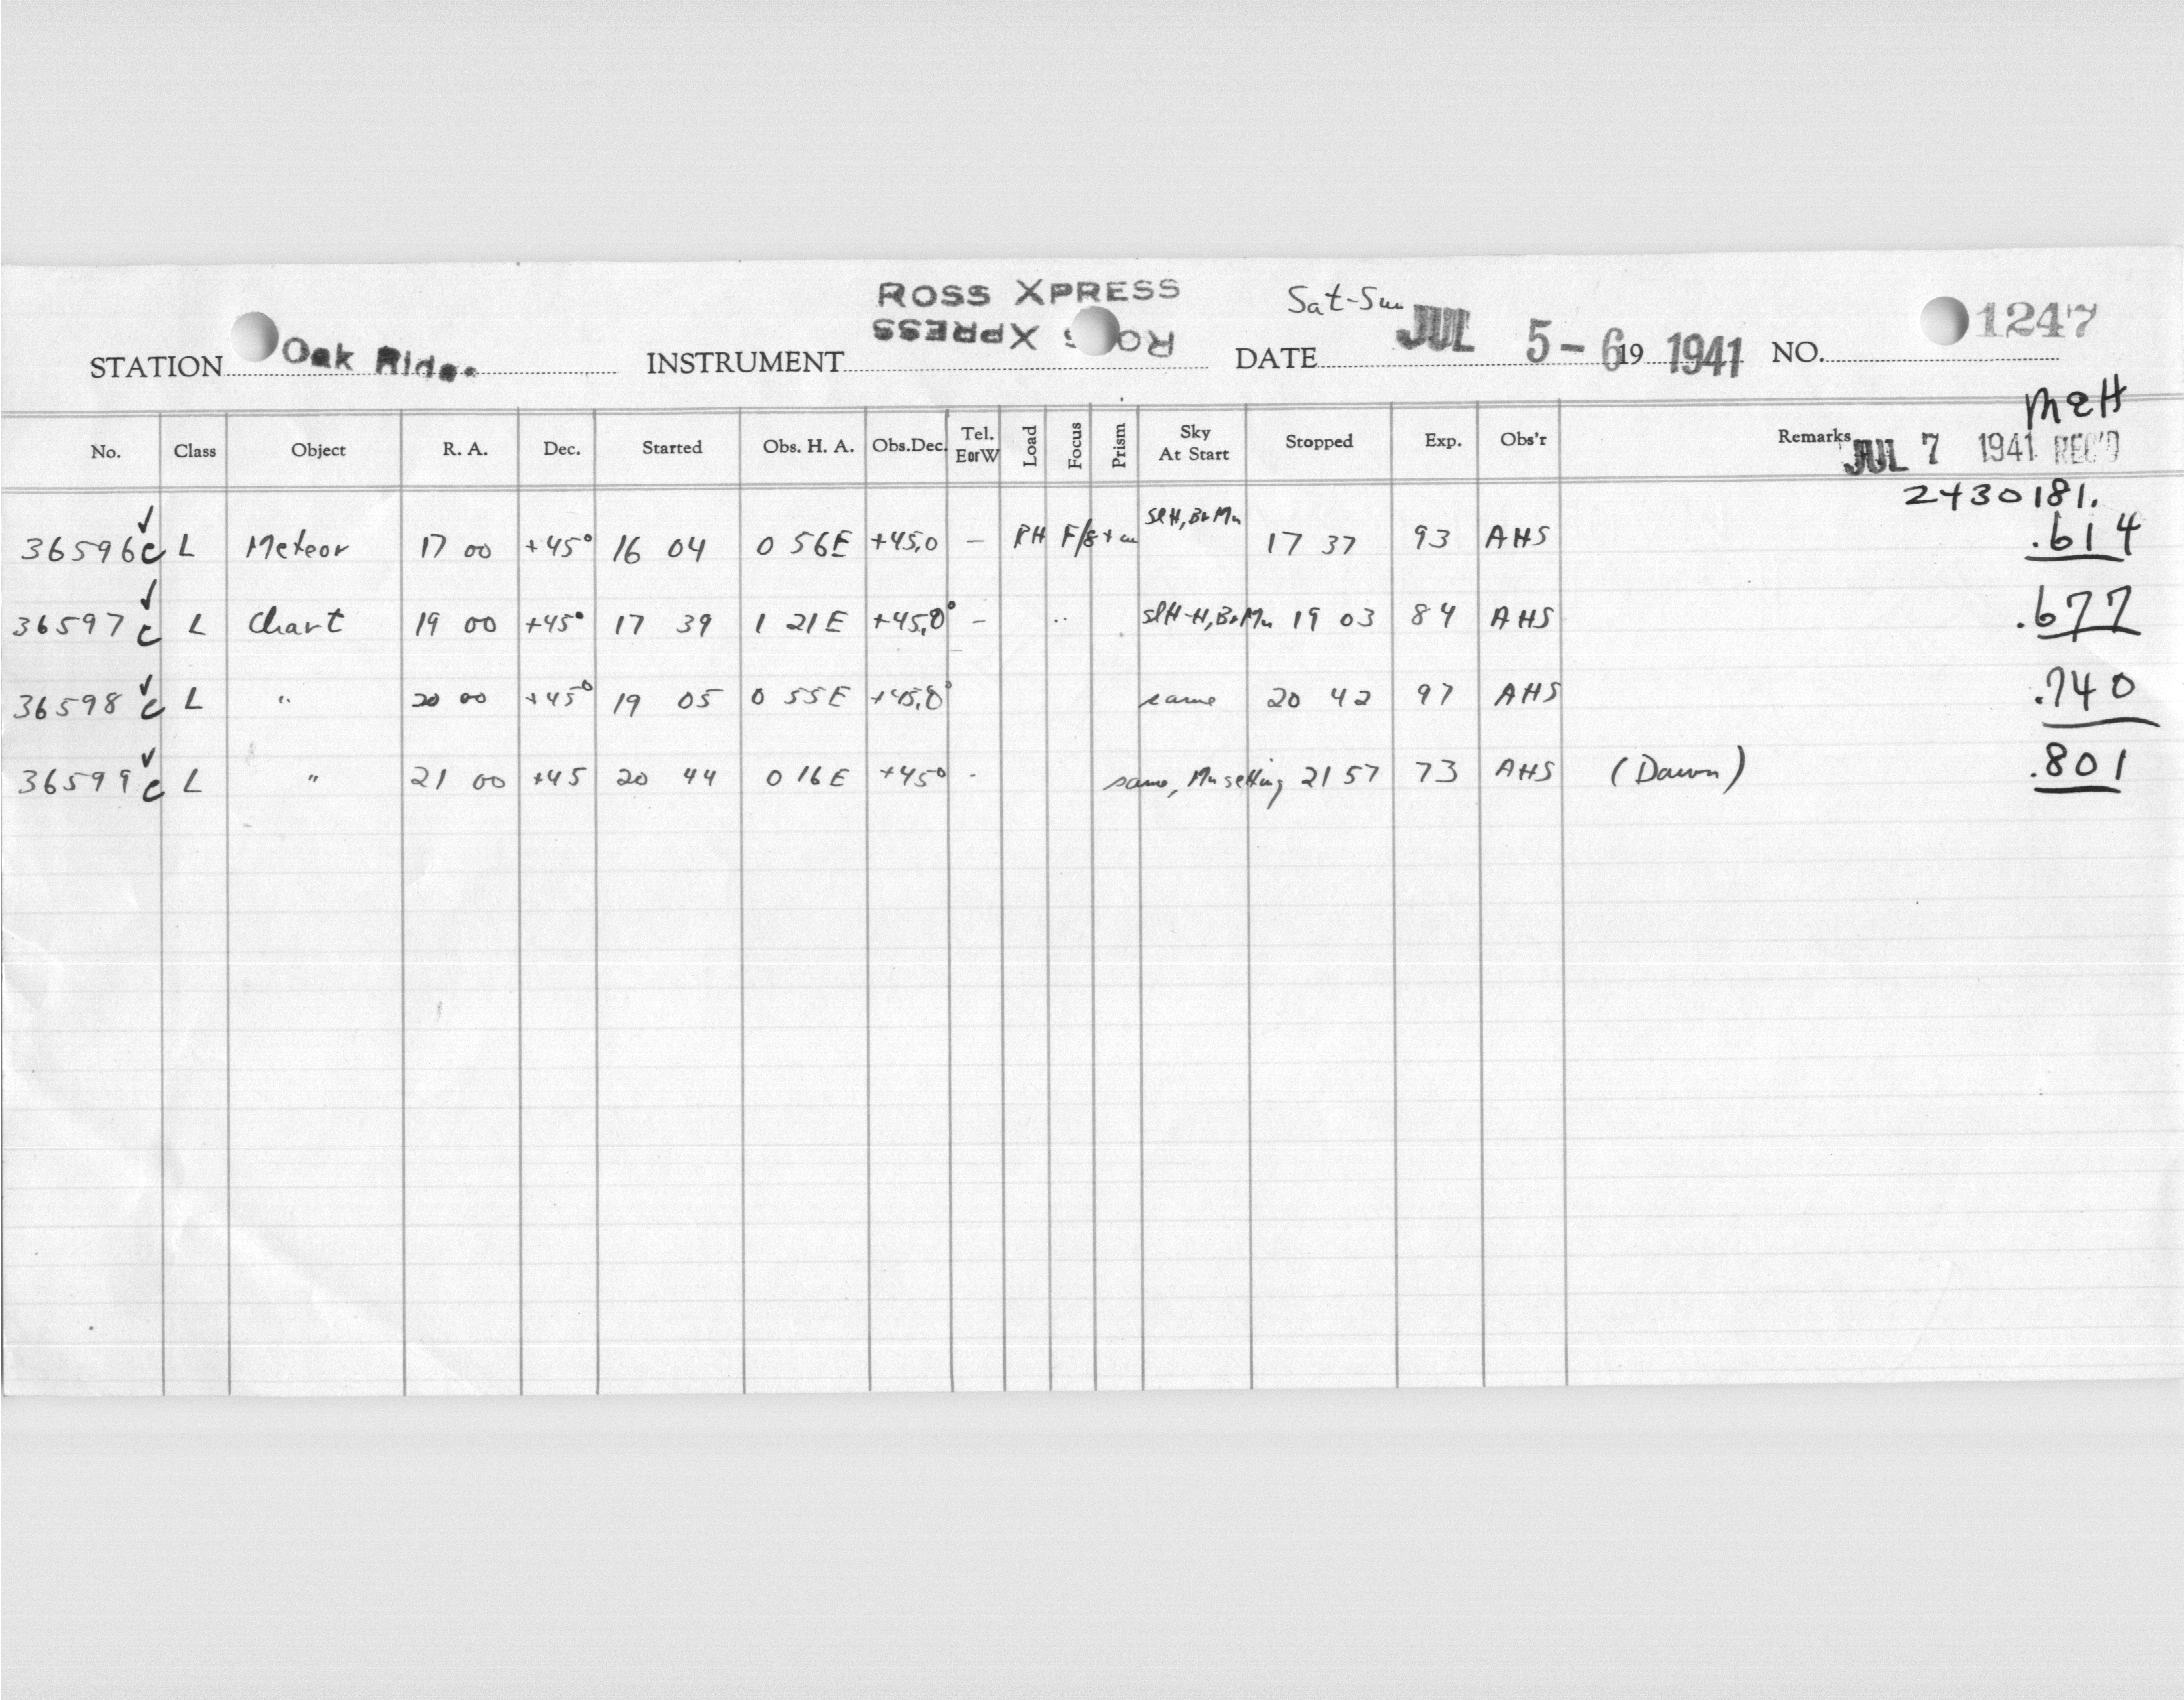 ROSS XPRESS
Sat-Sun
STATION Oak Ridge INSTRUMENT ROSS XPRESS DATE JUL 5-6 19 1941 NO. 1247
McH
No. Class Object R. A. Dec. Started Obs. H. A. Obs.Dec. Tel. EorW Load Focus Prism Sky At Start Stopped Exp. Obs'r Remarks JUL 7 1941 REC'D
2430181.
36596 c ✓ L Meteor 17 00 +45° 16 04 0 56E +45.0 – RH F/8 SlH, BrMn 17 37 93 AHS .614
36597 c ✓ L Chart 19 00 +45° 17 39 1 21E +45.0° – " SlH-H, BrMn 19 03 84 AHS .677
36598 c ✓ L " 20 00 +45° 19 05 0 55E +45.0° same 20 42 97 AHS .740
36599 c ✓ L " 21 00 +45 20 44 0 16E +45° - same, Mn setting 21 57 73 AHS (Dawn) .801